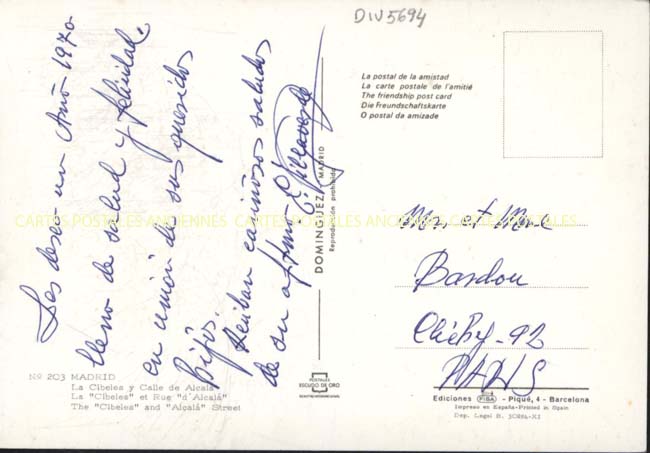 DIV5694
Les deseo un Año 1970
lleno de salud y felicidad.
en unión de sus queridos
Hijos.
Reciban cariñosos saludos
de su affmo
E. Villaverde
La postal de la amistad
La carte postale de l'amitié
The friendship post card
Die Freundschaftskarte
O postal da amizade
DOMINGUEZ MADRID
Reproducción prohibida
CARTES POSTALES ANCIENNES CARTES POSTALES ANCIENNES CARTES POSTALES
Mon et Mme
Bardou
Clichy-92
PARIS
Nº 203 MADRID
La Cibeles y Calle de Alcalá
La "Cibeles" et Rue "d'Alcalá"
The "Cibeles" and "Alcalá" Street
POSTALES
ESCUDO DE ORO
Ediciones FISA - Piqué, 4 - Barcelona
Impreso en España-Printed in Spain
Dep. Legal B. 30884-XI